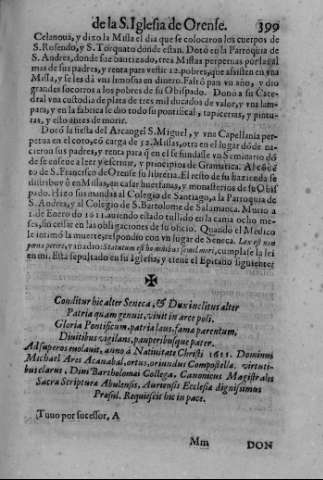 de la S. Iglesia de Orense. 399
Celanova, y dixo la Missa el dia que se colocaron los cuerpos de
S. Rosendo, y S. Torquato donde estan. Dotò en la Parroquia de
S. Andres, donde fue bautizado, tres Missas perpetuas por las
Missa, y se les dà vna limosna en dinero. Fastò pan vn año, y dio
grandes socorros a los pobres de su Obispado. Donò a su Cate-
dral vna custodia de plata de tres mil ducados de valor, y vna lam-
para, y en la fabrica se dio todo su pontifical, tapicerias, y pintu-
ras, y esto antes de morir.
Dotò la fiesta del Arcangel S. Miguel, y vna Capellania per-
petua en el coro, có carga de 52. Missas, otra en el lugar dóde na-
cieron sus padres, y renta para q̃ en el se fundasse vn Seminario dó
de se enseñe a leer y escriuir, y principios de Gramatica. Al cóuẽ
to de S. Francisco de Orense su libreria. El resto de su hazienda se
distribuyò en Missas, en casar huerfanas, y monasterios de su Obis
pado. Hizo sus mandas al Colegio de Santiago, a la Parroquia de
S. Andres, y al Colegio de S. Bartolome de Salamanca. Murio a
1. de Enero do 1611. auiendo estado tullido en la cama ocho me-
ses, sin cessar en las obligaciones de su oficio. Quando el Medico
le intimò la muerte, respondiò con vn lugar de Seneca. Lex est non
pœna perire, y añadio: Statutum est hominibus semel mori, cumplase la ley
en mi. Està sepultado en su Iglesia, y tiene el Epitafio siguiente
✠
Conditur hic alter Seneca, & Dux inclitus alter
Patria quam genuit, viuit in arce poli.
Gloria Pontificum, patria laus, fama parentum,
Diuitibus vigilans, pauperibusque pater.
Ad superos euolauit, anno à Natiuitate Christi 1611. Dominus
Michael Ares Acanabal, ortus, oriundus Compostella, virtuti-
bus clarus, Diui Bartholomai Collega, Canonicus Magistralis
Sacra Scriptura Abulensis, Auriensis Ecclesia dignissimus
Præsul. Requiescit hic in pace.
Tuuo por sucessor, A
Mm DON